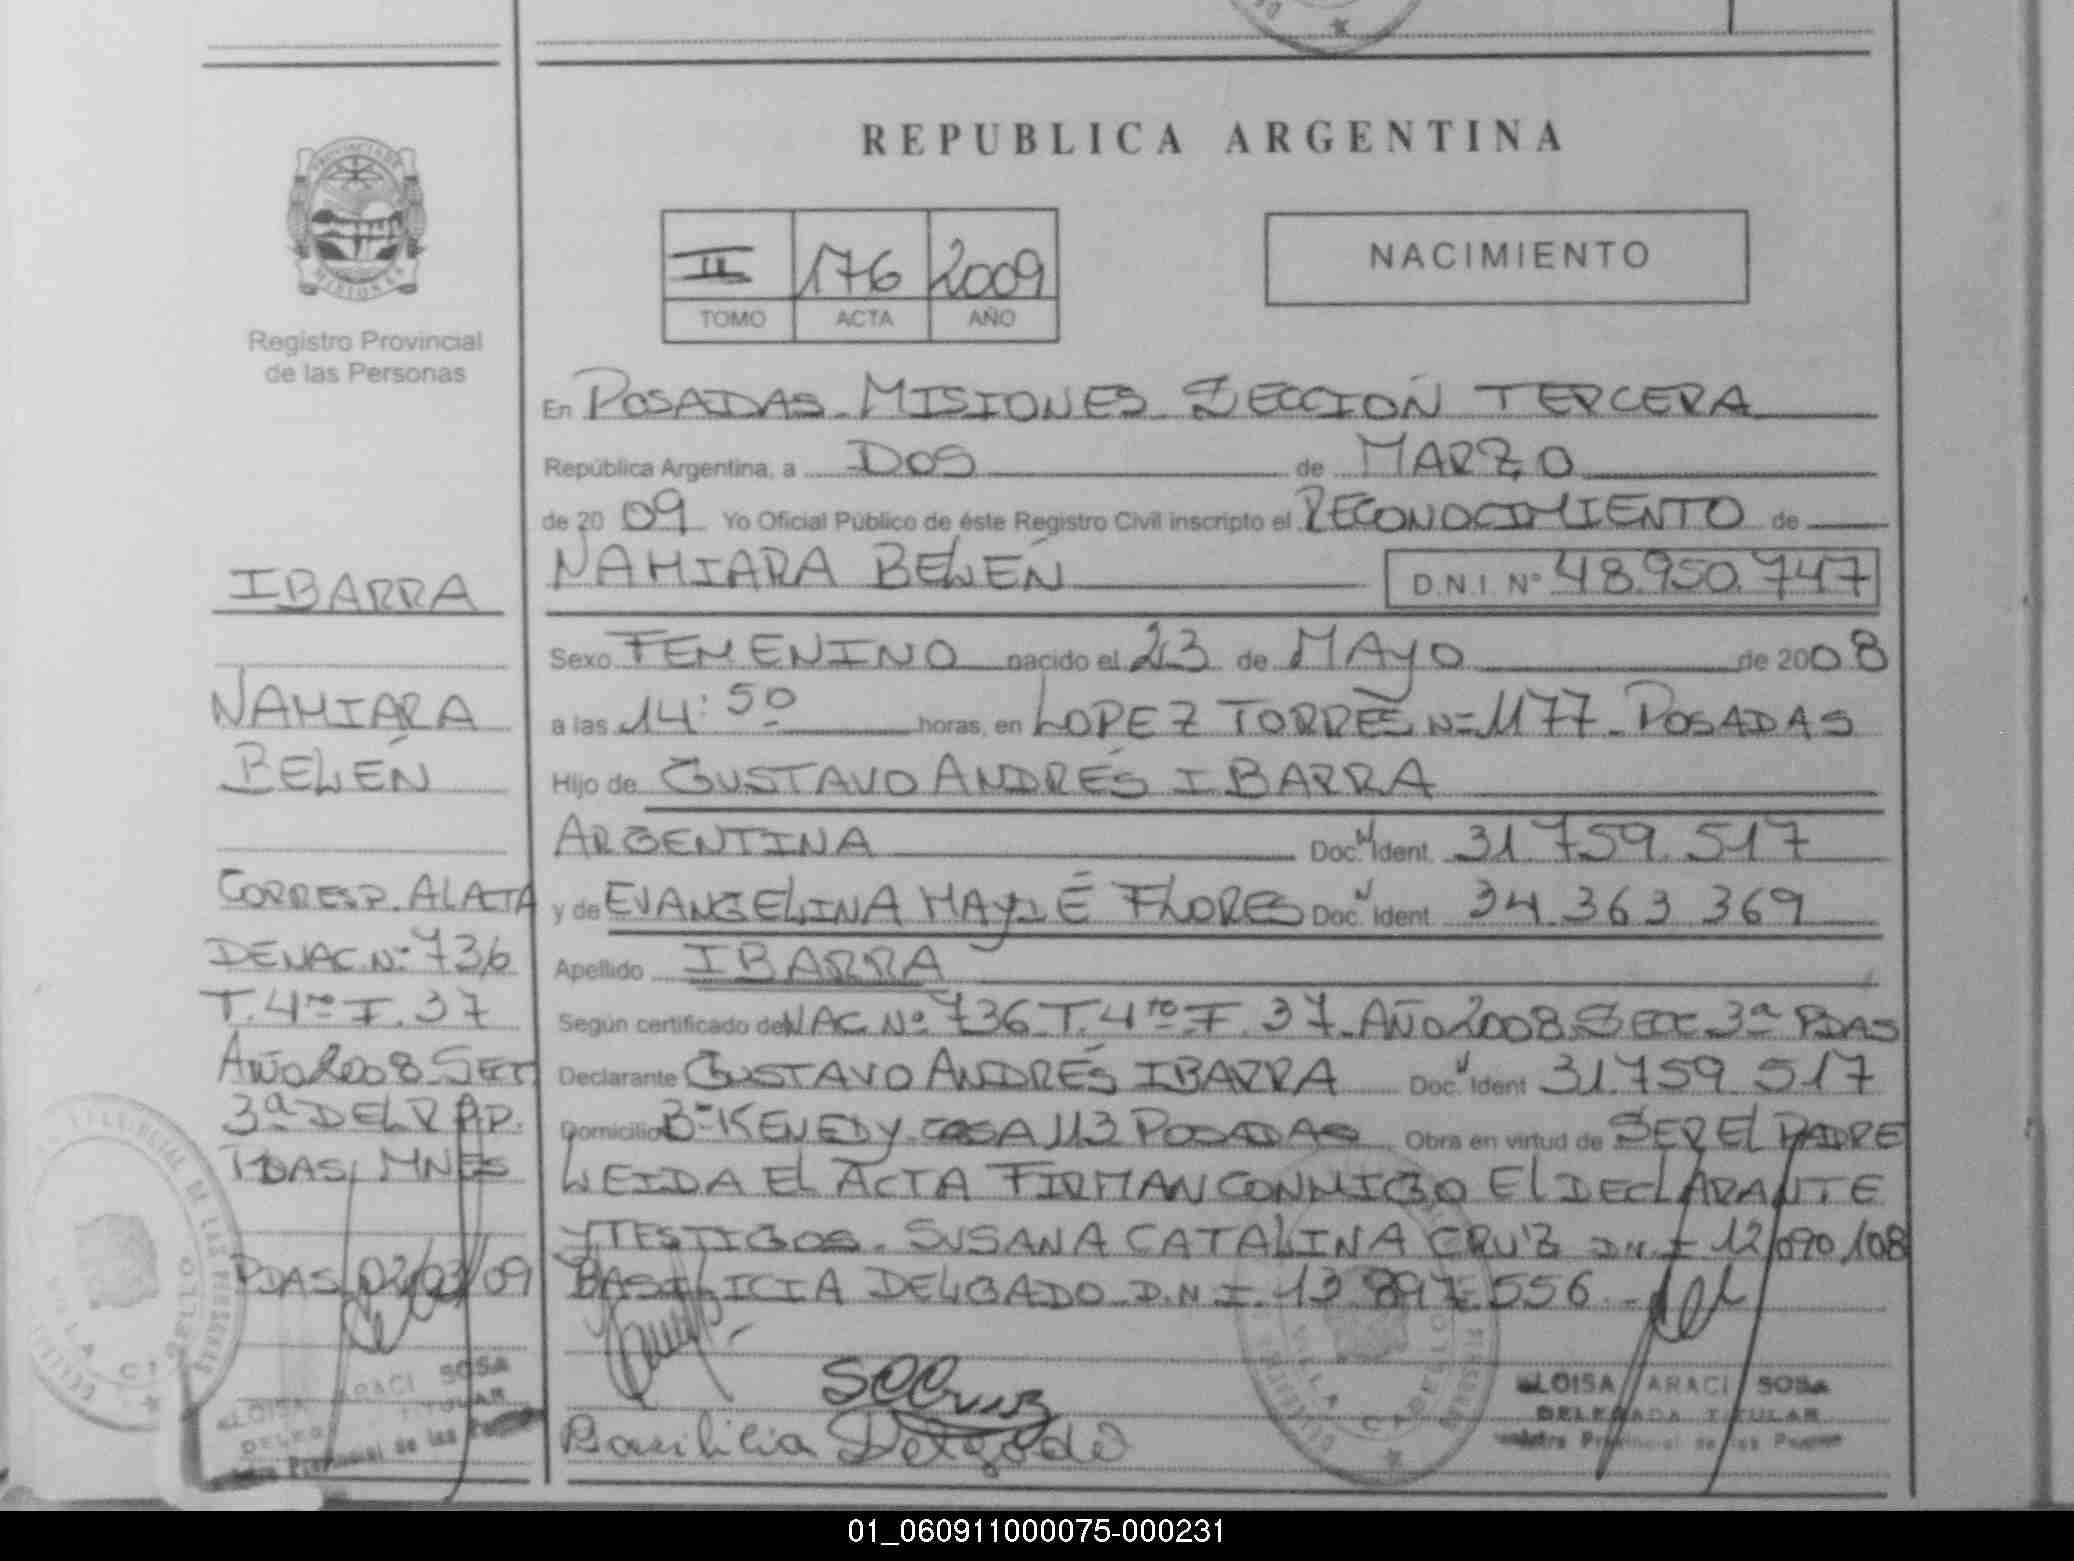 REPUBLICA ARGENTINA
PROVINCIA DE
MISIONES
Registro Provincial
de las Personas
II 176 2009
TOMO ACTA AÑO
NACIMIENTO
En POSADAS. MISIONES SECCION TERCERA
República Argentina, a DOS de MARZO
de 2009 Yo Oficial Público de éste Registro Civil inscripto el RECONOCIMIENTO de
NAHIARA BELÉN D.N.I. Nº 48.950.747
Sexo FEMENINO nacido el 23 de MAYO de 2008
a las 14:50 horas, en LOPEZ TORRES Nº 1177. POSADAS
Hijo de GUSTAVO ANDRÉS IBARRA
ARGENTINA Doc. Ident. 31.759.517
y de EVANGELINA HAYDÉ FLORES Doc. Ident. 34.363.369
Apellido IBARRA
Según certificado de NAC. Nº 736 T. 4to F. 37. AÑO 2008 SECC. 3ª PDAS
Declarante GUSTAVO ANDRÉS IBARRA Doc. Ident 31.759.517
Domicilio Bº KENEDY. CASA 113 POSADAS Obra en virtud de SER EL PADRE
LEIDA EL ACTA FIRMAN CONMIGO EL DECLARANTE
Y TESTIGOS. SUSANA CATALINA CRUZ D.N.I 12.090.108
BASILICIA DELGADO D.N.I. 13.897.556.
SCCruz
Basilicia Delgado
ELOISA ARACI SOSA
DELEGADA TITULAR
Registro Provincial de las Personas
IBARRA
NAHIARA
BELÉN
CORRESP. AL ACTA
DE NAC. Nº 736
T. 4to F. 37
AÑO 2008 SEC
3ª DEL R.P.P.
PDAS, MNES
PDAS 02/03/09
ELOISA ARACI SOSA
DELEGADA TITULAR
Registro Provincial de las Personas
VILLA CABELLO
VILLA CABELLO
01_060911000075-000231